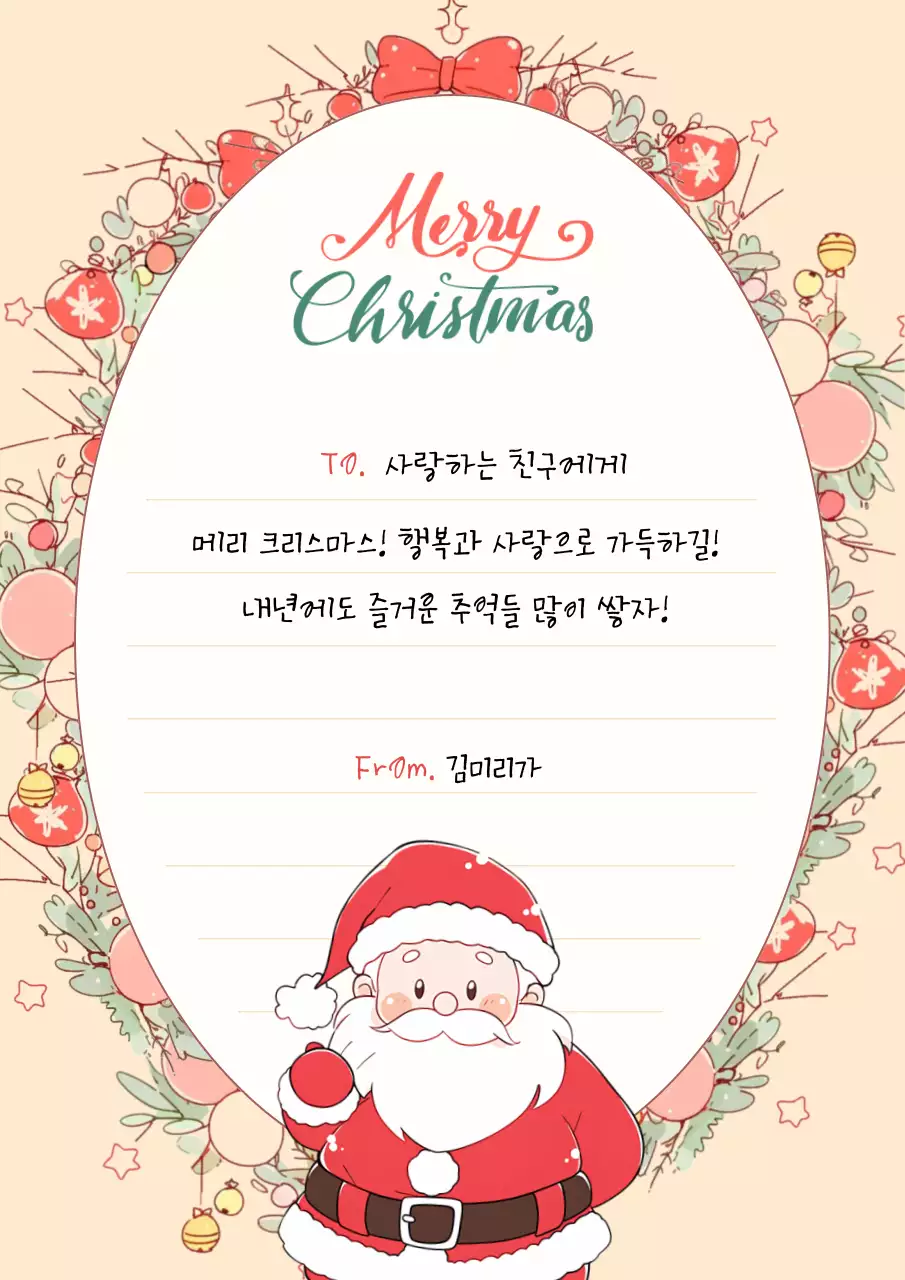 Merry
Christmas
To. 사랑하는 친구에게
메리 크리스마스! 행복과 사랑으로 가득하길!
내년에도 즐거운 추억들 많이 쌓자!
From. 김미리가